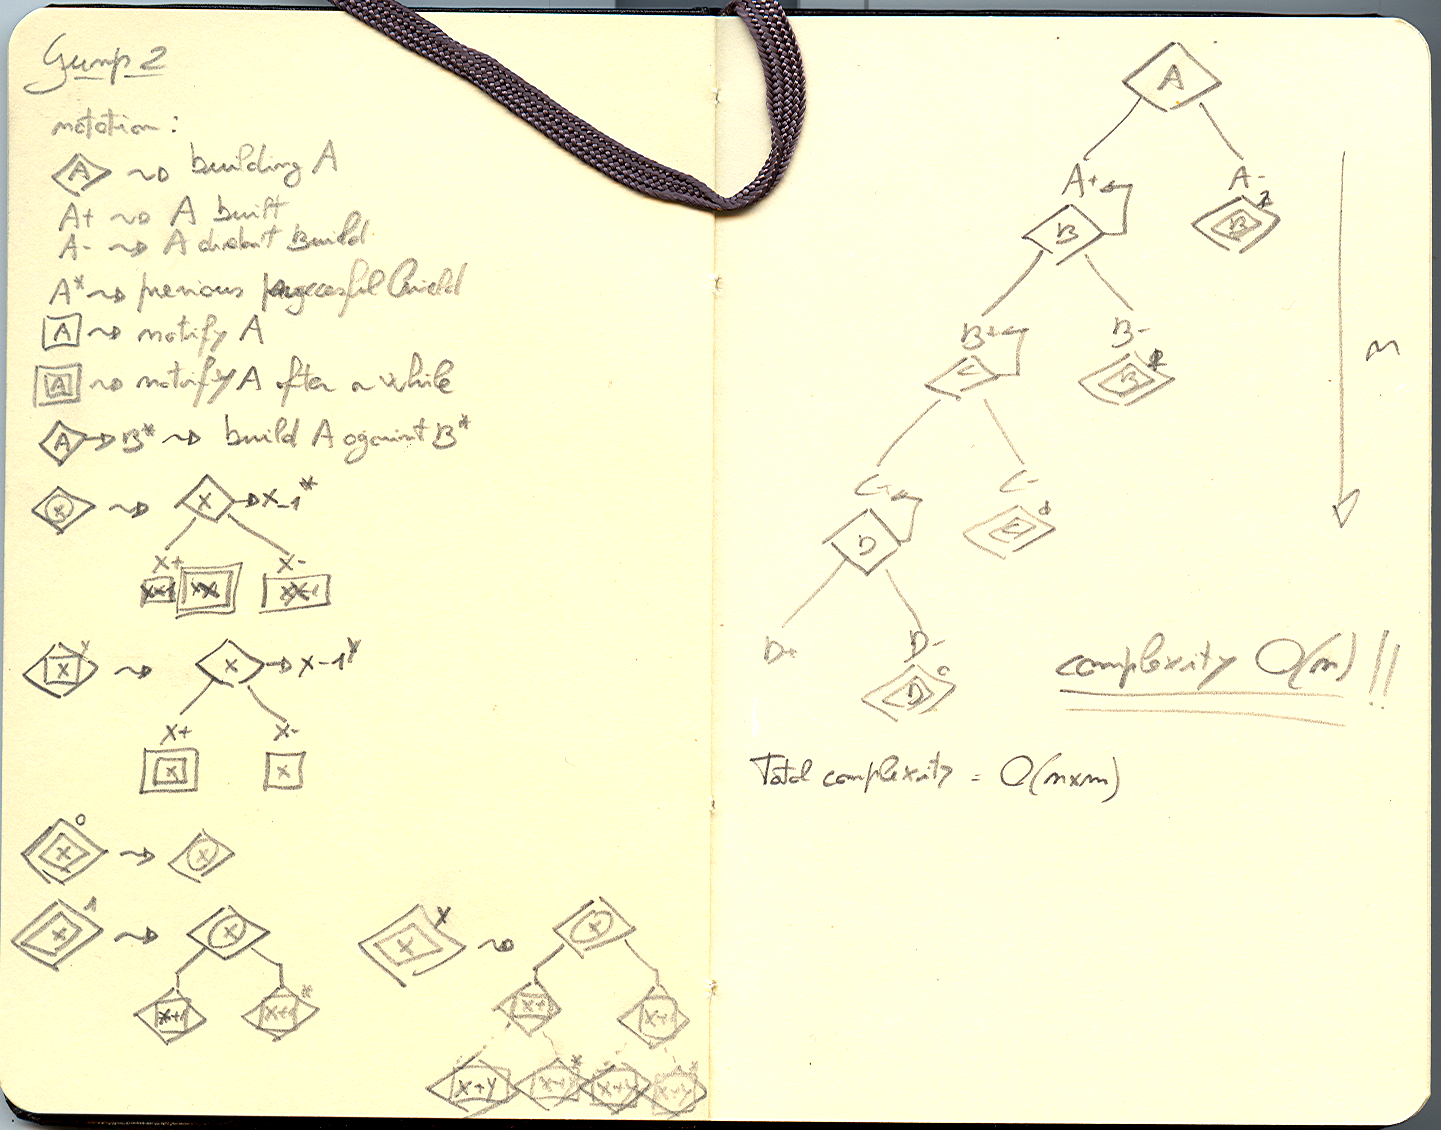 Gump 2
notation:
A ~> building A
A+ ~> A built
A- ~> A didn't build
A* ~> previous successful build
A ~> notify A
A ~> notify A after a while
A → B* ~> build A against B*
x ~> x → x-1*
x+ x-
x ~> x → x-1*
x+ x-
x x
x 0 ~> x
x 1 ~> x
x+1 x+1*
x y ~> x
x+1 x+1
x+y x+y* x+y x+y*
A
A+ A-
B B 2
B+ B-
C B
C+ C-
D C 1
D+ D-
D 0
n
complexity O(n)!!
Total complexity = O(n×m)